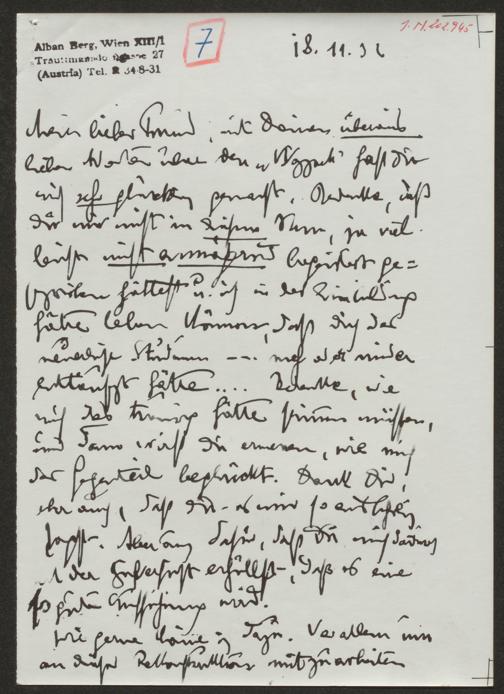 J.N. 202.945
Alban Berg, Wien XIII/1
Trauttmansdorffgasse 27
(Austria) Tel. R 34-8-31
7
18.11.32
Mein lieber Freund, mit Deinen überaus
lieben Worten über den „Wozzeck" hast Du
mich sehr glücklich gemacht. Bedenke, daß
Du mir nicht in diesem Sinn, ja viel-
leicht nicht annähernd begeistert ge=
schrieben hättest u. ich in der Einbildung
hätte leben können, daß Dich das
neuerliche Studium --- mehr oder minder
enttäuscht hätte.... Bedenke, wie
mich das traurig hätte stimmen müssen,
und dann wirst Du ermessen, wie mich
das Gegenteil beglückt. Dank Dir,
aber auch, daß Du es mir so ausführlich
sagst. Aber auch dafür, daß Du mich
mit der Zuversicht erfüllst, daß es eine
so gute Aufführung wird.
Wie gerne käme ich dazu. Vor allem um
an dieser Rekonstruktion mitzuarbeiten